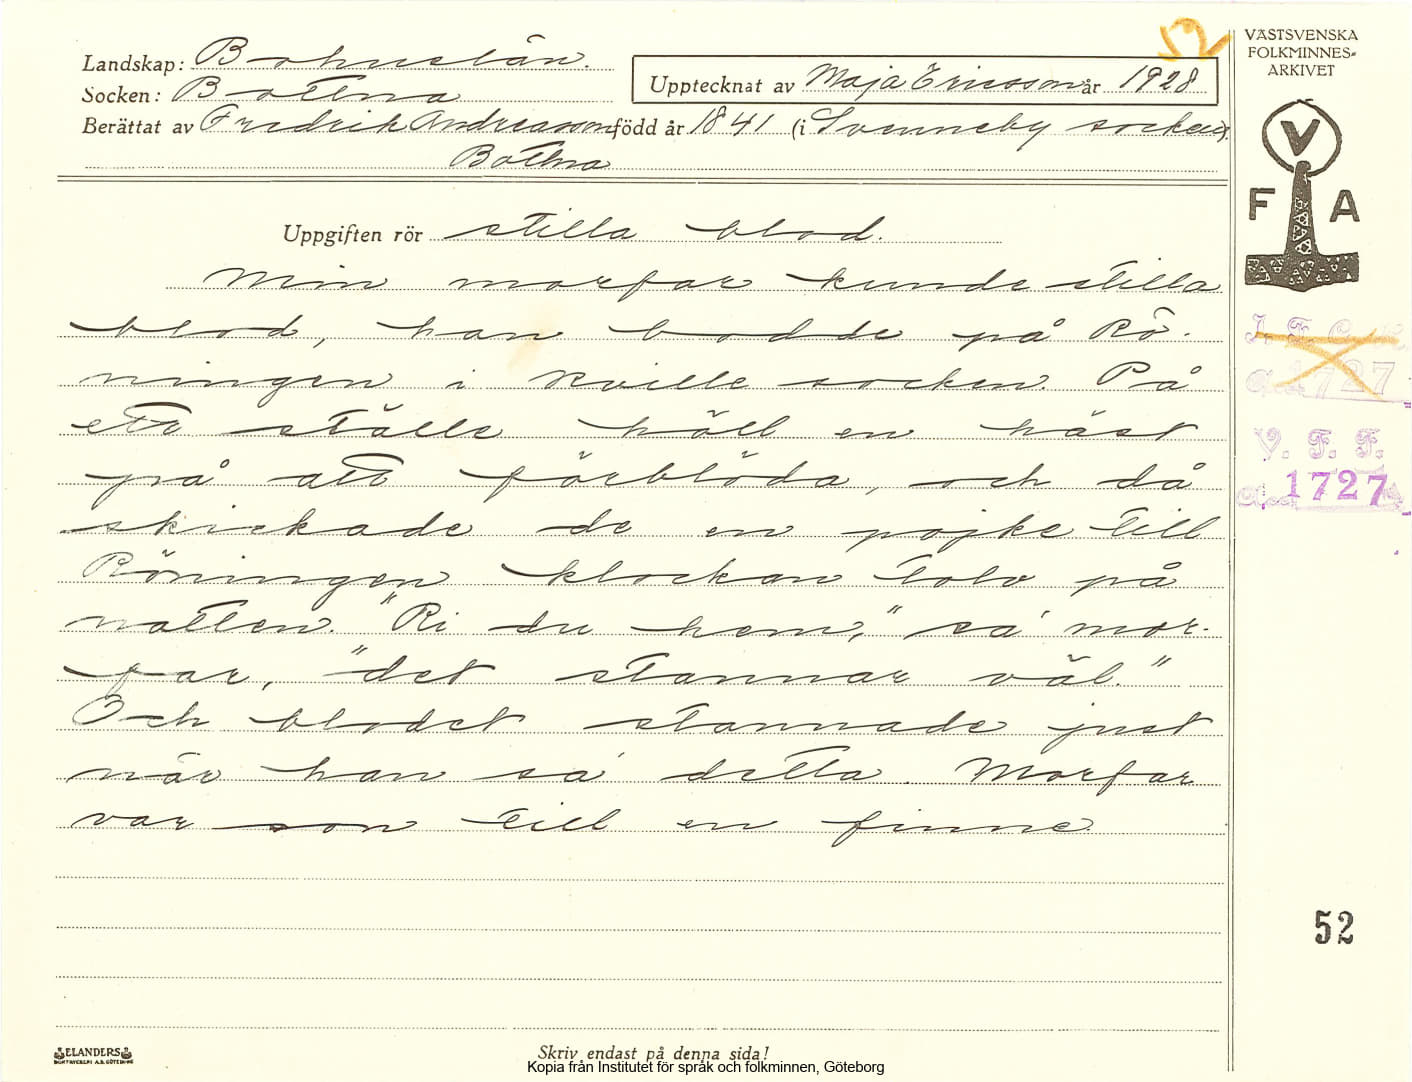 Landskap: Bohuslän.
Socken: Bottna
Upptecknat av Maja Ericsson år 1928
Berättat av Fredrik Andreasson född år 1841 (i Svenneby socken).
Bottna
Uppgiften rör stilla blod.
Min morfar kunde stilla
blod, han bodde på Rö-
ningen i Kville socken. På
ett ställe höll en häst
på att förblöda, och då
skickade de en pojke till
Röningen klockan tolv på
natten. "Ri du hem," sa' mor-
far, "det stannar väl."
Och blodet stannade just
när han sa' detta. Morfar
var son till en finne.
Skriv endast på denna sida!
ELANDERS
BOKTRYCKERI A.B. GÖTEBORG
Kopia från Institutet för språk och folkminnen, Göteborg
VÄSTSVENSKA
FOLKMINNES-
ARKIVET
V
F A
1727
V. F. F.
Acc 1727
52